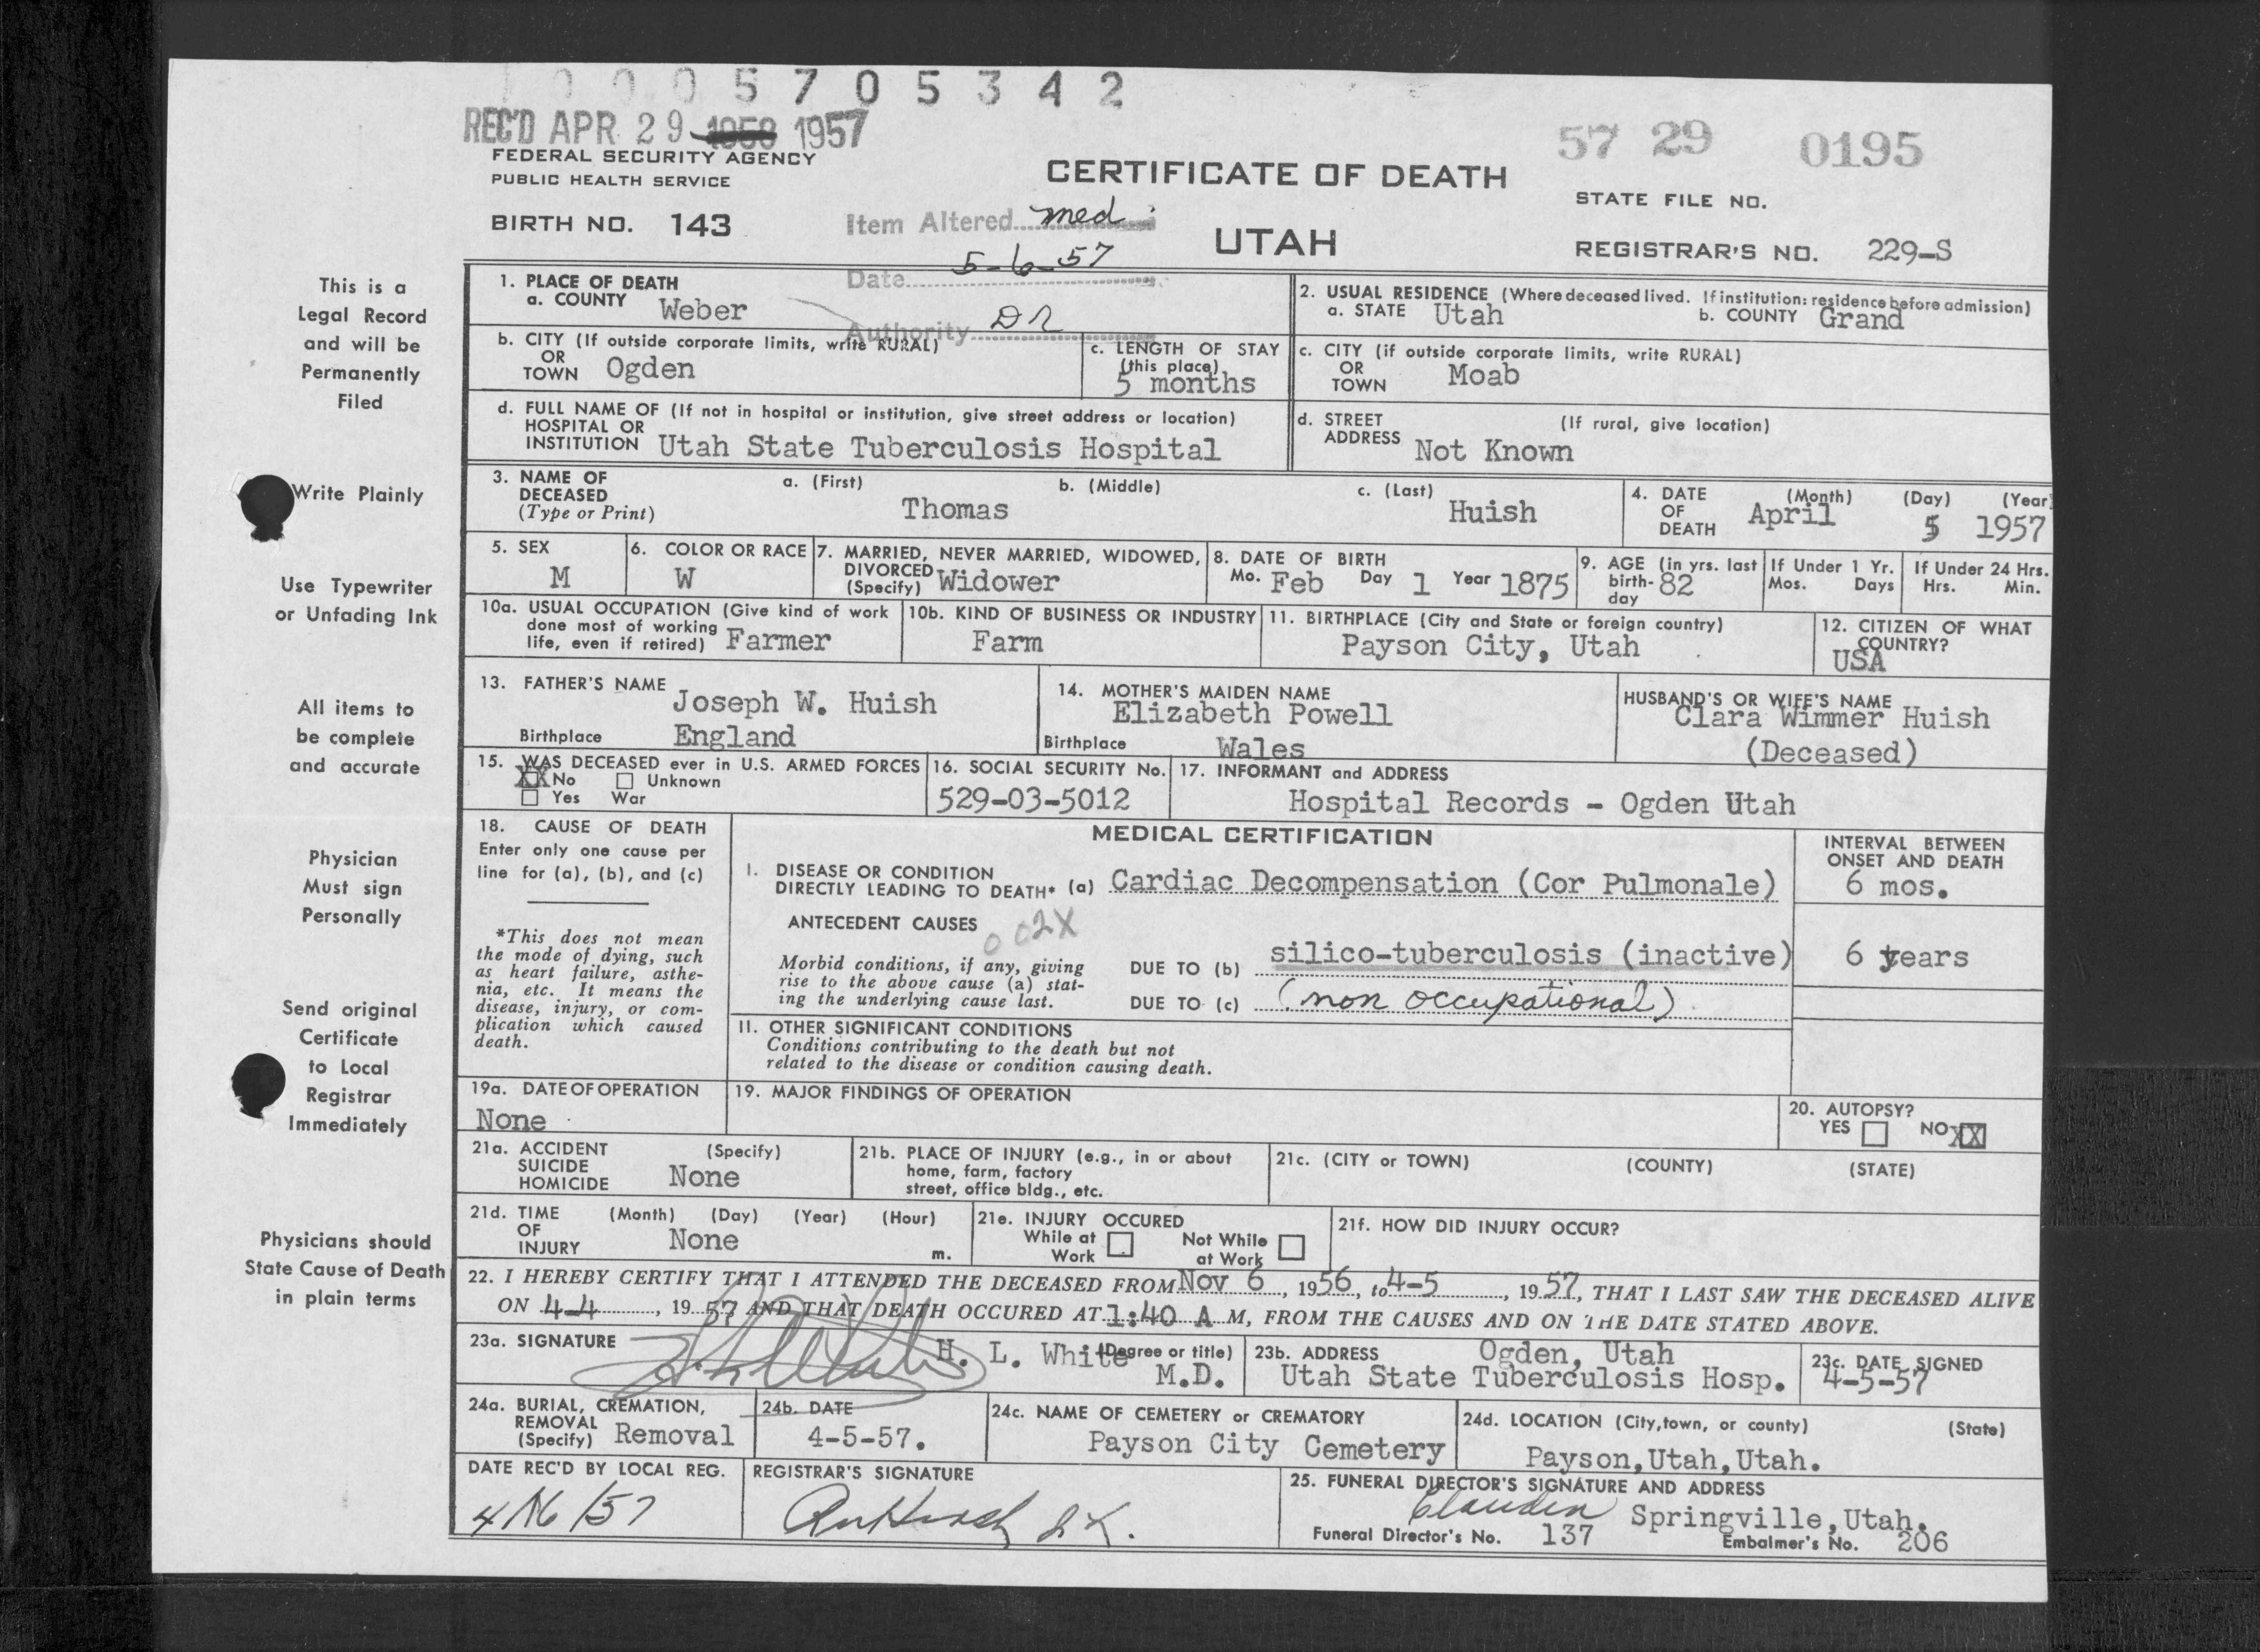 0 0 0 5 7 0 5 3 4 2
REC'D APR 29 1957
57 29 0195
FEDERAL SECURITY AGENCY
PUBLIC HEALTH SERVICE
CERTIFICATE OF DEATH
STATE FILE NO.
BIRTH NO. 143
Item Altered med
UTAH
REGISTRAR'S NO. 229-S
Date 5-6-57
Authority DR
This is a
Legal Record
and will be
Permanently
Filed
Write Plainly
Use Typewriter
or Unfading Ink
All items to
be complete
and accurate
Physician
Must sign
Personally
Send original
Certificate
to Local
Registrar
Immediately
Physicians should
State Cause of Death
in plain terms
1. PLACE OF DEATH
a. COUNTY Weber
2. USUAL RESIDENCE (Where deceased lived. If institution: residence before admission)
a. STATE Utah b. COUNTY Grand
b. CITY (If outside corporate limits, write RURAL)
OR
TOWN Ogden
c. LENGTH OF STAY
(this place)
5 months
c. CITY (if outside corporate limits, write RURAL)
OR
TOWN Moab
d. FULL NAME OF (If not in hospital or institution, give street address or location)
HOSPITAL OR
INSTITUTION Utah State Tuberculosis Hospital
d. STREET (If rural, give location)
ADDRESS Not Known
3. NAME OF
DECEASED
(Type or Print)
a. (First) b. (Middle) c. (Last)
Thomas Huish
4. DATE
OF
DEATH
(Month) (Day) (Year)
April 5 1957
5. SEX
M
6. COLOR OR RACE
W
7. MARRIED, NEVER MARRIED, WIDOWED,
DIVORCED
(Specify) Widower
8. DATE OF BIRTH
Mo. Feb Day 1 Year 1875
9. AGE (in yrs. last
birth-
day 82
If Under 1 Yr.
Mos. Days
If Under 24 Hrs.
Hrs. Min.
10a. USUAL OCCUPATION (Give kind of work
done most of working
life, even if retired) Farmer
10b. KIND OF BUSINESS OR INDUSTRY
Farm
11. BIRTHPLACE (City and State or foreign country)
Payson City, Utah
12. CITIZEN OF WHAT
COUNTRY?
USA
13. FATHER'S NAME
Joseph W. Huish
Birthplace England
14. MOTHER'S MAIDEN NAME
Elizabeth Powell
Birthplace Wales
HUSBAND'S OR WIFE'S NAME
Clara Wimmer Huish
(Deceased)
15. WAS DECEASED ever in U.S. ARMED FORCES
XX No Unknown
Yes War
16. SOCIAL SECURITY No.
529-03-5012
17. INFORMANT and ADDRESS
Hospital Records - Ogden Utah
18. CAUSE OF DEATH
Enter only one cause per
line for (a), (b), and (c)
*This does not mean
the mode of dying, such
as heart failure, asthe-
nia, etc. It means the
disease, injury, or com-
plication which caused
death.
MEDICAL CERTIFICATION
INTERVAL BETWEEN
ONSET AND DEATH
I. DISEASE OR CONDITION
DIRECTLY LEADING TO DEATH* (a) Cardiac Decompensation (Cor Pulmonale)
6 mos.
ANTECEDENT CAUSES
002X
Morbid conditions, if any, giving
rise to the above cause (a) stat-
ing the underlying cause last.
DUE TO (b) silico-tuberculosis (inactive)
6 years
DUE TO (c) (non occupational)
II. OTHER SIGNIFICANT CONDITIONS
Conditions contributing to the death but not
related to the disease or condition causing death.
19a. DATE OF OPERATION
None
19. MAJOR FINDINGS OF OPERATION
20. AUTOPSY?
YES NO XX
21a. ACCIDENT (Specify)
SUICIDE
HOMICIDE None
21b. PLACE OF INJURY (e.g., in or about
home, farm, factory
street, office bldg., etc.
21c. (CITY or TOWN) (COUNTY) (STATE)
21d. TIME (Month) (Day) (Year) (Hour)
OF
INJURY None m.
21e. INJURY OCCURED
While at
Work
Not While
at Work
21f. HOW DID INJURY OCCUR?
22. I HEREBY CERTIFY THAT I ATTENDED THE DECEASED FROM Nov 6, 1956, to 4-5, 1957, THAT I LAST SAW THE DECEASED ALIVE
ON 4-4, 1957 AND THAT DEATH OCCURED AT 1:40 A M, FROM THE CAUSES AND ON THE DATE STATED ABOVE.
23a. SIGNATURE H. L. White (Degree or title)
M.D.
23b. ADDRESS Ogden, Utah
Utah State Tuberculosis Hosp.
23c. DATE SIGNED
4-5-57
24a. BURIAL, CREMATION,
REMOVAL
(Specify) Removal
24b. DATE
4-5-57.
24c. NAME OF CEMETERY or CREMATORY
Payson City Cemetery
24d. LOCATION (City, town, or county) (State)
Payson,Utah,Utah.
DATE REC'D BY LOCAL REG.
REGISTRAR'S SIGNATURE
25. FUNERAL DIRECTOR'S SIGNATURE AND ADDRESS
Springville,Utah.
Funeral Director's No. 137 Embalmer's No. 206